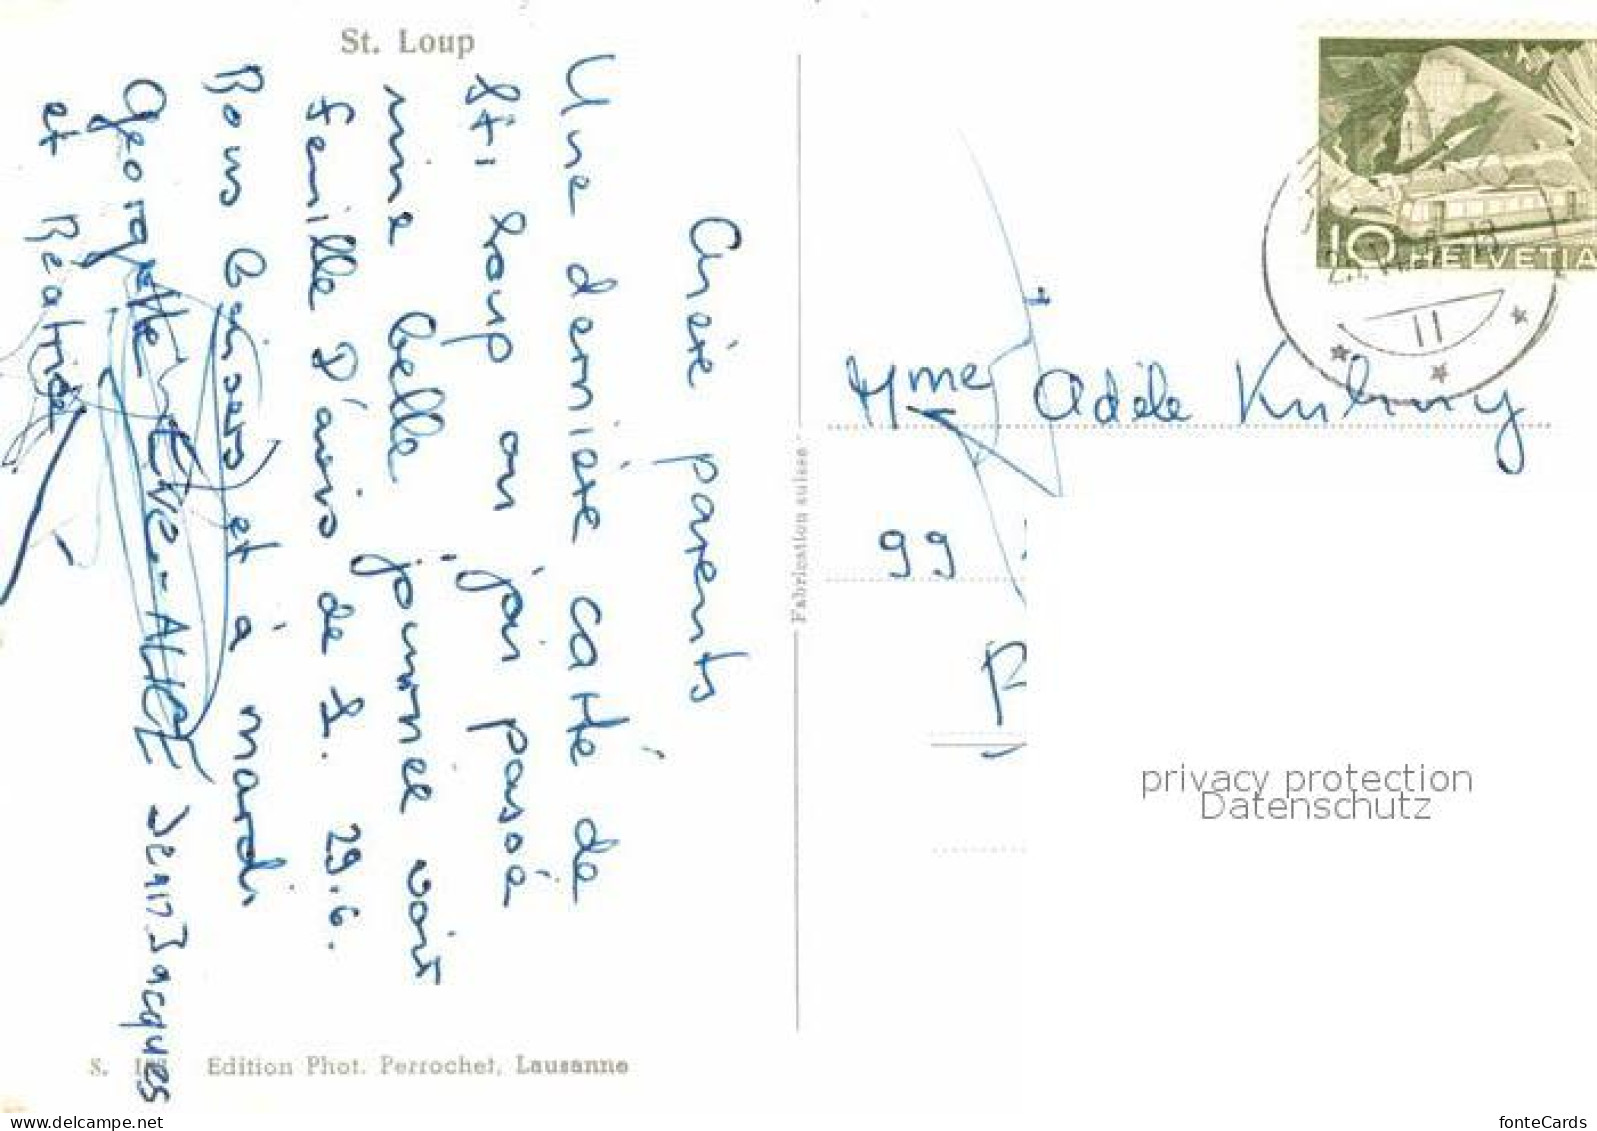 St. Loup
Chère parents
Une dernière carte de
St. Loup ou j'ai passé
mine belle journée voir
feuille D'avis de L. 29.6.
Bons baisers et à mardi
Georgette EVE-ALICE Jean Jacques
et Béatrice
S. Edition Phot. Perrochet, Lausanne
Fabrication suisse
10 HELVETIA
11
Mme Adèle
99
privacy protection
Datenschutz
fonteCards